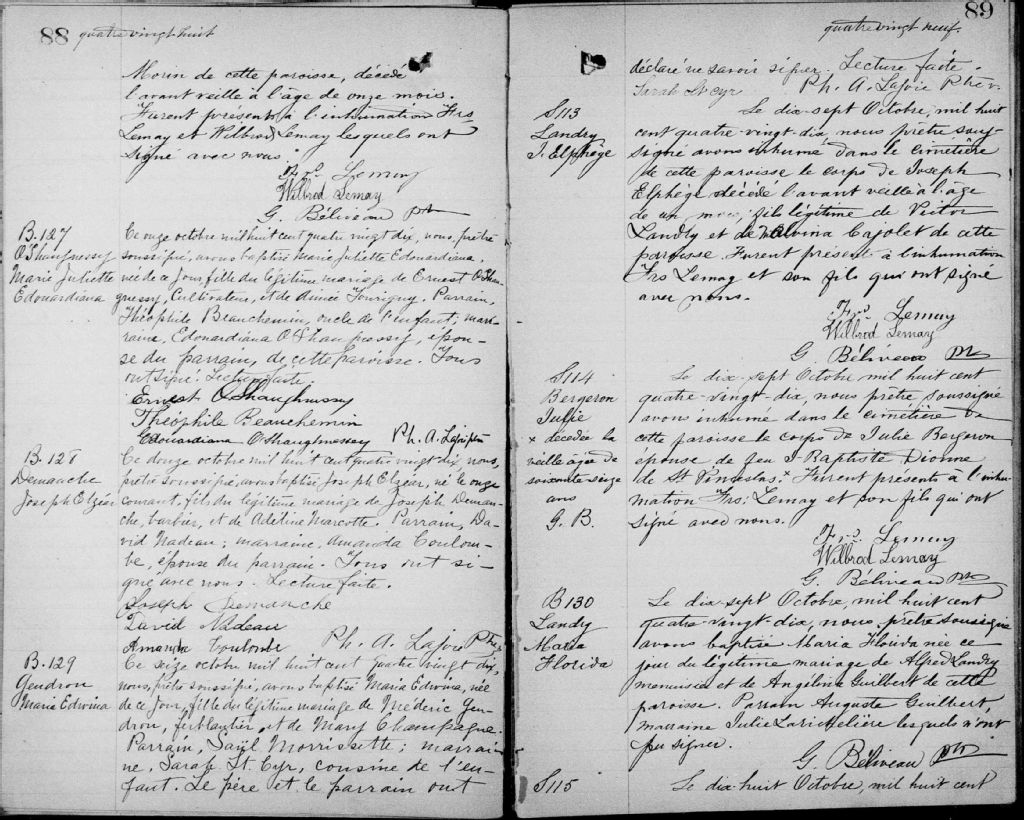 88 quatre vingt huit
Morin de cette paroisse, décédé
l'avant veille à l'âge de onze mois.
Furent présents à l'inhumation Frs
Lemay et Wilbrod Lemay lesquels ont
signé avec nous
Frs. Lemay
Wilbrod Lemay
G. Béliveau ptr
B. 127
O'Shaughnessy
Marie Juliette
Edouardiana
Ce onze octobre mil huit cent quatre vingt dix, nous, prêtre
soussigné, avons baptisé Marie Juliette Edouardiana,
née de ce jour, fille du légitime mariage de Ernest O'Shau
gnessy, Cultivateur, et de Aimée Tourigny. Parrain,
Théophile Beauchemin, oncle de l'enfant; mar-
raine, Edouardiana O'Shaugnessy, épou-
se du parrain, de cette paroisse. Tous
ont signé. Lecture faite.
Ernest O'Shaughnessy
Théophile Beauchemin
Edouardiana O'Shaughnessey Ph. A. Lafoie ptre
B. 128
Demanche
Joseph Elzéar
Ce douze octobre mil huit cent quatre vingt dix, nous,
prêtre soussigné, avons baptisé Joseph Elzéar, né le onze
courant, fils du légitime mariage de Joseph Deman-
che, barbier, et de Adeline Marcotte. Parrain, Da-
vid Nadeau; marraine, Amanda Coulom-
be, épouse du parrain. Tous ont si-
gné avec nous. Lecture faite.
Joseph Demanche
David Nadeau
Amanda Coulombe Ph. A. Lafoie Ptre
B. 129
Gendron
Maria Edwina
Ce seize octobre mil huit cent quatre vingt dix,
nous, prêtre soussigné, avons baptisé Maria Edwina, née
de ce jour, fille du légitime mariage de Nréderic Gen-
dron, ferblantier, et de Mary Champagne.
Parrain, Morrissette; marrai-
ne, Sarah St. Cyr, cousine de l'en-
fant. Le père et le parrain ont
89
quatre vingt neuf.
déclaré ne savoir signer. Lecture faite.
Sarah St Cyr Ph. A. Lafoie Ptre
S113
Landry
J. Elphège
Le dix-sept Octobre, mil huit
cent quatre-vingt-dix, nous prêtre sous-
signé avons inhumé dans le cimetière
de cette paroisse le corps de Joseph
Elphège décédé l'avant veille à l'âge
de un mois, fils légitime de Victor
Landry et de Malvina Cajolet de cette
paroisse. Furent présent à l'inhumation
Frs Lemay et son fils qui ont signé
avec nous.
Frs. Lemay
Wilbrod Lemay
G. Béliveau ptr
S114
Bergeron
Julie
x décédée la
veille âgée de
soixante-seize
ans
G. B.
Le dix-sept Octobre mil huit cent
quatre-vingt-dix, nous prêtre soussigné
avons inhumé dans le cimetière de
cette paroisse le corps de Julie Bergeron
épouse de feu J-Baptiste Dionne
de St x Furent présents à l'inhu-
mation Frs. Lemay et son fils qui ont
signé avec nous.
Frs. Lemay
Wilbrod Lemay
G. Béliveau ptr
B130
Landry
Maria
Florida
Le dix-sept Octobre, mil huit cent
quatre-vingt-dix, nous prêtre soussigné
avons baptisé Maria Florida née ce
jour du légitime mariage de Alfred Landry
menuisier et de Angélina Guilbert de cette
paroisse. Parrain Auguste Guilbert,
marraine Julie Larichelière lesquels n'ont
pu signer.
G. Béliveau ptr
S115
Le dix-huit Octobre, mil huit cent